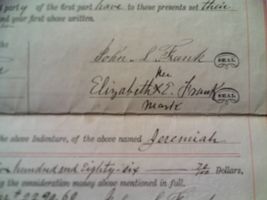 party of the first part have to these presents set their
nd year first above written.
John S Frank SEAL
her
Elizabeth X E. Frank SEAL
mark
he above Indenture, of the above named Jeremiah
hundred and Eighty-six Dollars,
g the consideration money above mentioned in full.